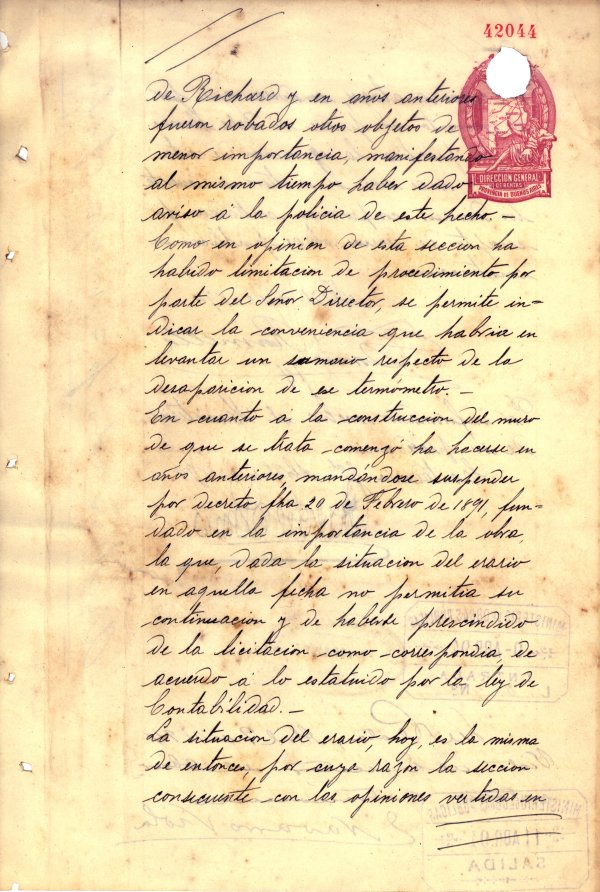 42044
DIRECCION GENERAL
DE RENTAS
PROVINCIA DE BUENOS AIRES
de Richard y en años anteriores
fueron robados otros objetos de
menor importancia, manifestando
al mismo tiempo haber dado
aviso á la policia de este hecho.—
Como en opinion de esta seccion ha
habido limitacion de procedimiento por
parte del Señor Director, se permite in-
dicar la conveniencia que habria en
levantar un sumario respecto de la
desaparicion de ese termómetro.—
En cuanto á la construccion del muro
de que se trata comenzó ha hacerse en
años anteriores, mandándose suspender
por decreto fha 20 de Febrero de 1891, fun-
dado en la importancia de la obra,
la que, dada la situacion del erario
en aquella fecha no permitia su
continuacion y de haberse prescindido
de la licitacion como correspondia de
acuerdo á lo estatuido por la ley de
Contabilidad.—
La situacion del erario, hoy, es la misma
de entonces, por cuya razon la seccion
consecuente con las opiniones vertidas en
SALIDA